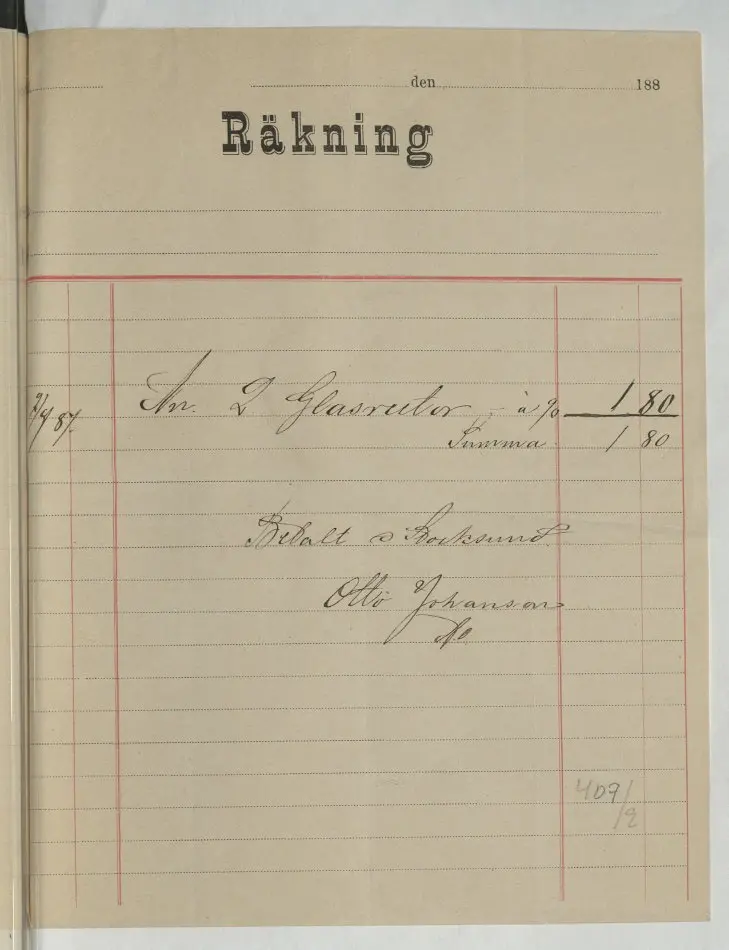 den 188
Räkning
87. An. 2 Glasrutor à % 1 80
Summa 1 80
Betalt Stocksund
Otto Johanson
409/2